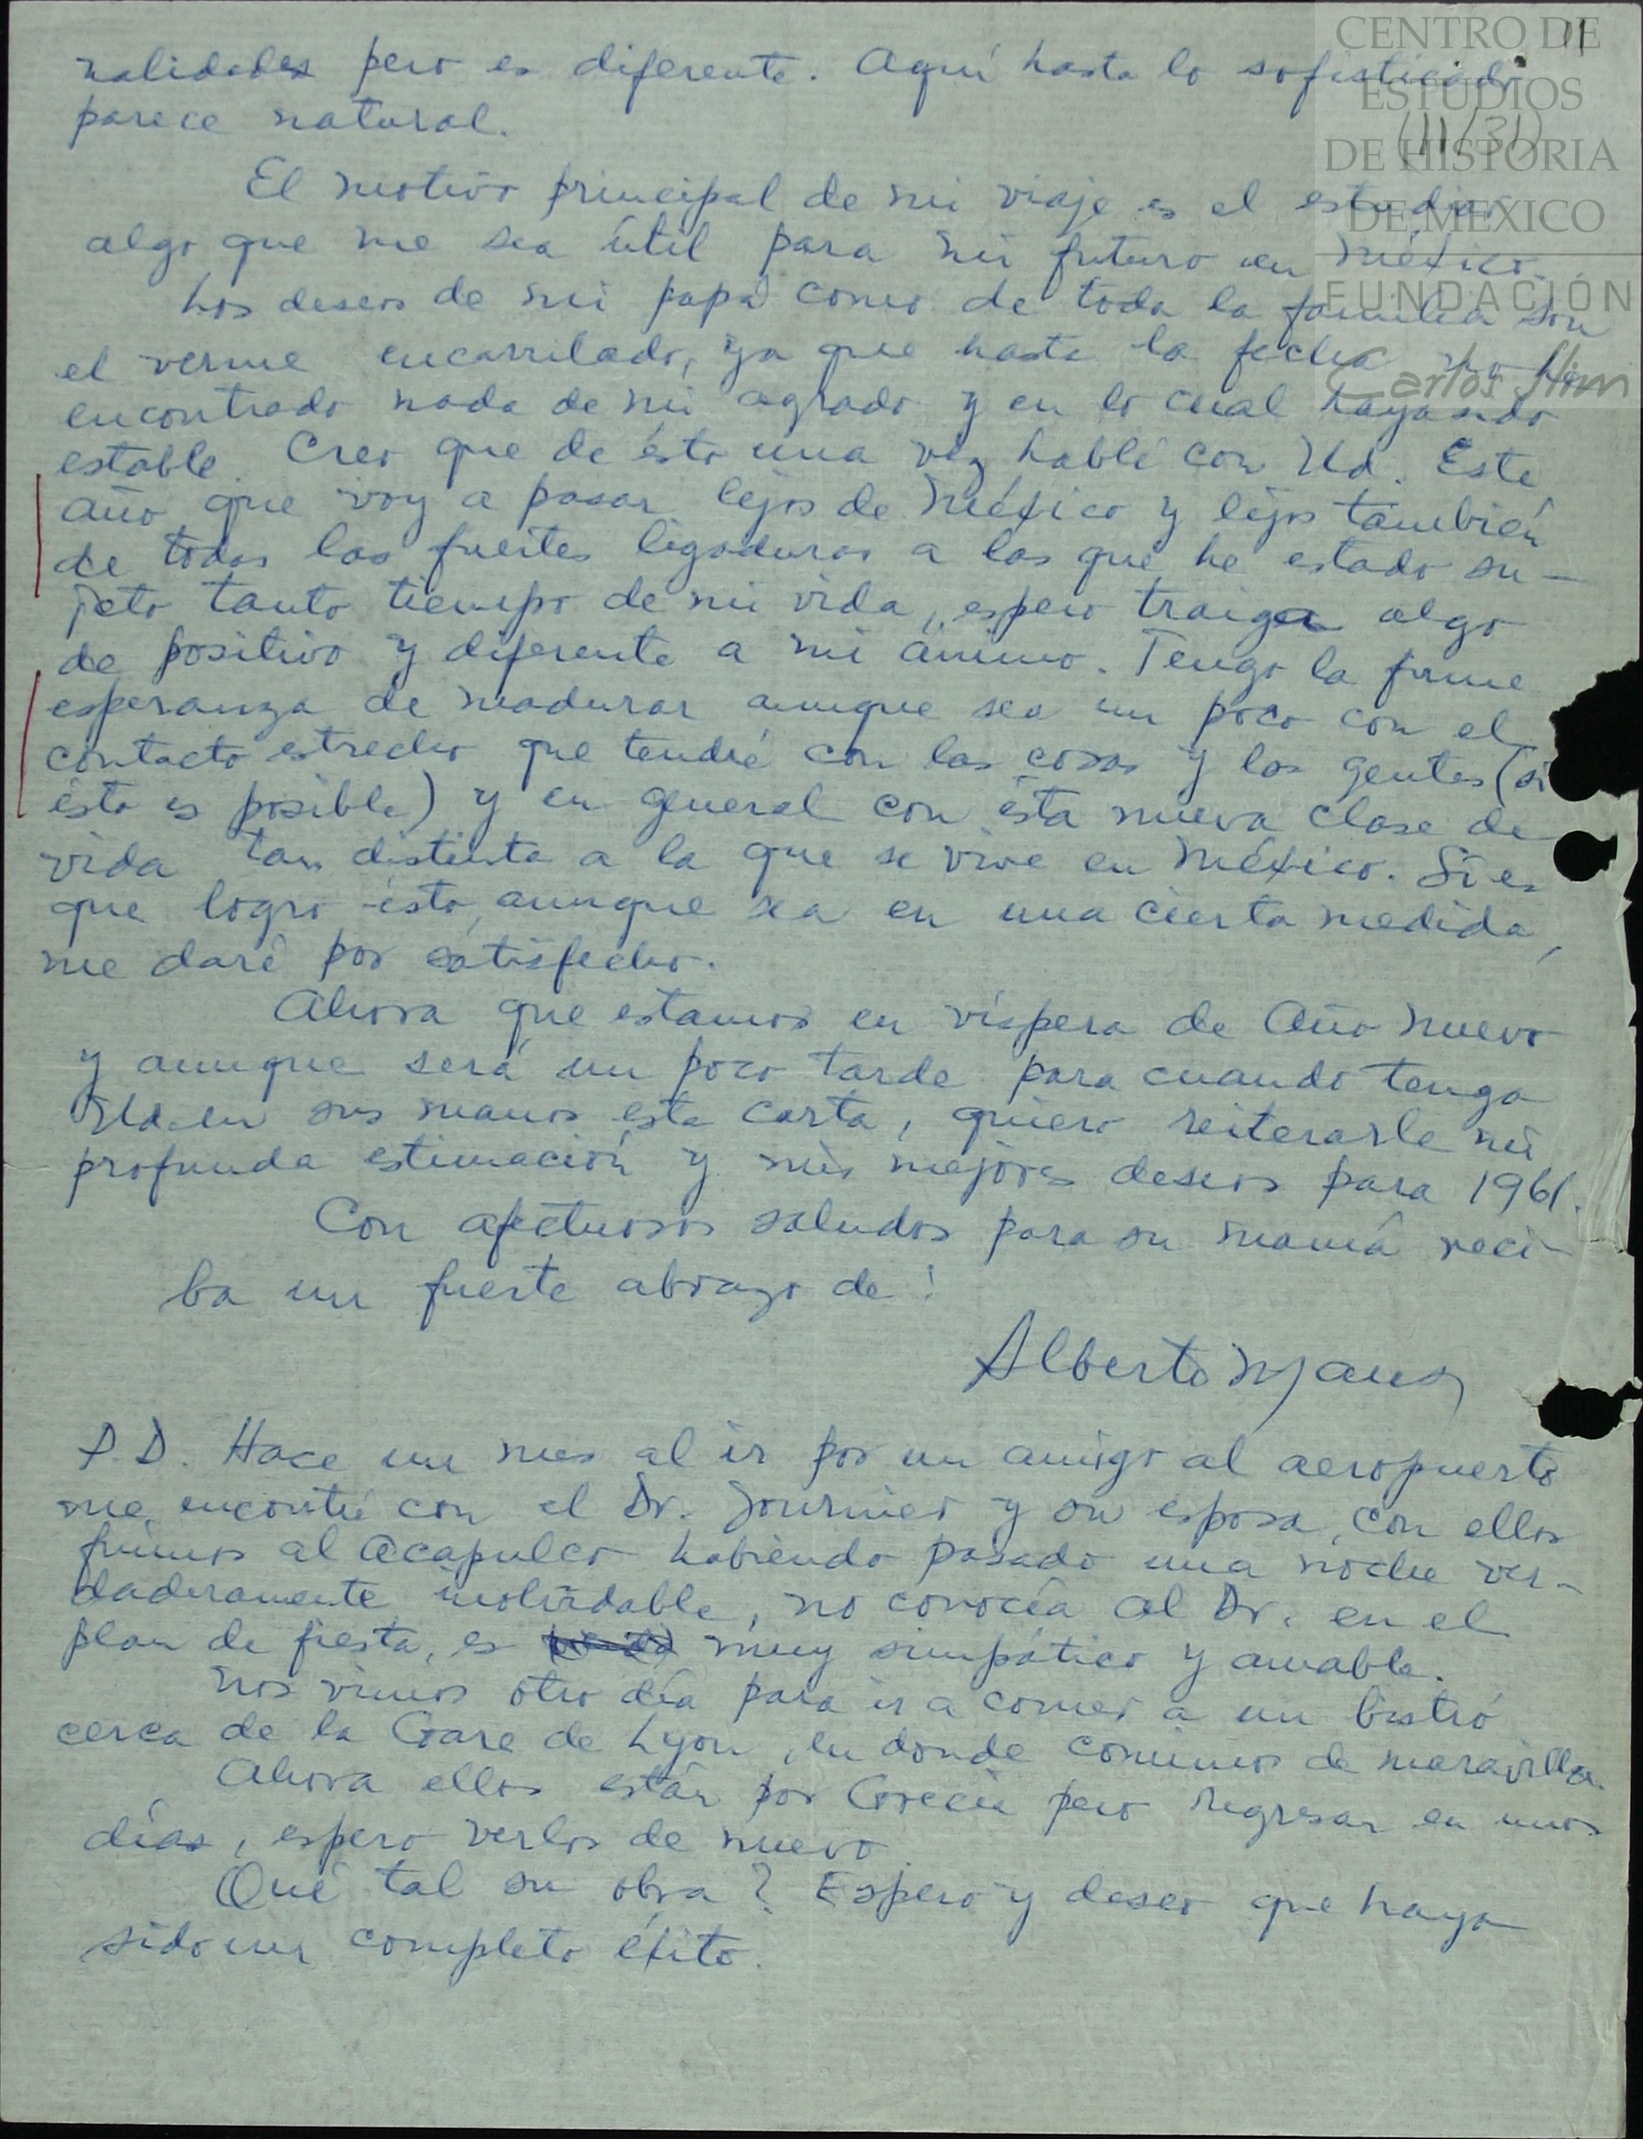 11
(11/31)
CENTRO DE
ESTUDIOS
DE HISTORIA
DE MEXICO
FUNDACIÓN
Carlos Slim
nalidades pero es diferente. Aquí hasta lo sofisticado
parece natural.
El motivo principal de mi viaje es el estudiar
algo que me sea útil para mi futuro en México.
Los deseos de mi papá como de toda la familia son
el verme encarrilado, ya que hasta la fecha no he
encontrado nada de mi agrado y en lo cual haya sido
estable. Creo que de ésto una vez hablé con Ud. Este
año que voy a pasar lejos de México y lejos también
de todas las fuertes ligaduras a las que he estado su-
jeto tanto tiempo de mi vida, espero traiga algo
de positivo y diferente a mi ánimo. Tengo la firme
esperanza de madurar aunque sea un poco con el
contacto estrecho que tendré con las cosas y las gentes (si
ésto es posible) y en general con ésta nueva clase de
vida tan distinta a la que se vive en México. Si es
que logro ésto, aunque sea en una cierta medida,
me daré por satisfecho.
Ahora que estamos en víspera de Año Nuevo
y aunque será un poco tarde para cuando tenga
Ud. en sus manos esta carta, quiero reiterarle mi
profunda estimación y mis mejores deseos para 1961.
Con afectuosos saludos para su mamá reci-
ba un fuerte abrazo de:
Alberto
P.D. Hace un mes al ir por un amigo al aeropuerto
me encontré con el Dr. y su esposa, con ellos
fuimos al Acapulco habiendo pasado una noche ver-
daderamente inolvidable, no conocía al Dr. en el
plan de fiesta, es muy simpático y amable.
Nos vimos otro día para ir a comer a un bistró
cerca de la Gare de Lyon, en donde comimos de maravilla.
Ahora ellos están por Grecia pero regresan en unos
días, espero verlos de nuevo.
Qué tal su obra? Espero y deseo que haya
sido un completo éxito.